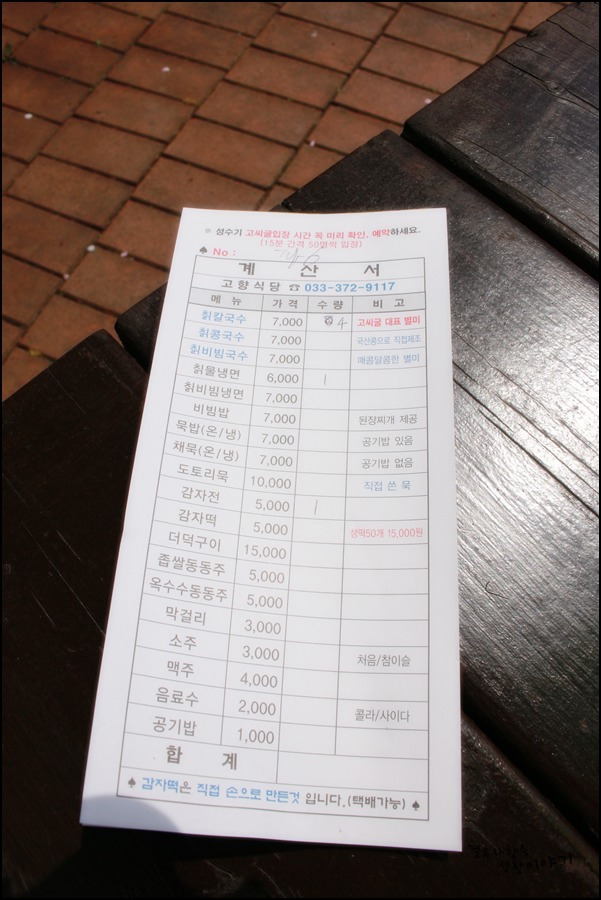 ※ 성수기 고씨굴입장 시간 꼭 미리 확인, 예약하세요.
(15분 간격 50명씩 입장)
♠ No :
계 산 서
고향식당 ☎ 033-372-9117
메 뉴 가 격 수 량 비 고
칡칼국수 7,000 4 고씨굴 대표 별미
칡콩국수 7,000 국산콩으로 직접제조
칡비빔국수 7,000 매콤달콤한 별미
칡물냉면 6,000 1
칡비빔냉면 7,000
비빔밥 7,000 된장찌개 제공
묵밥(온/냉) 7,000 공기밥 있음
채묵(온/냉) 7,000 공기밥 없음
도토리묵 10,000 직접 쑨 묵
감자전 5,000 1
감자떡 5,000 생떡50개 15,000원
더덕구이 15,000
좁쌀동동주 5,000
옥수수동동주 5,000
막걸리 3,000
소주 3,000 처음/참이슬
맥주 4,000
음료수 2,000 콜라/사이다
공기밥 1,000
합 계
♠ 감자떡은 직접 손으로 만든것 입니다.(택배가능) ♠